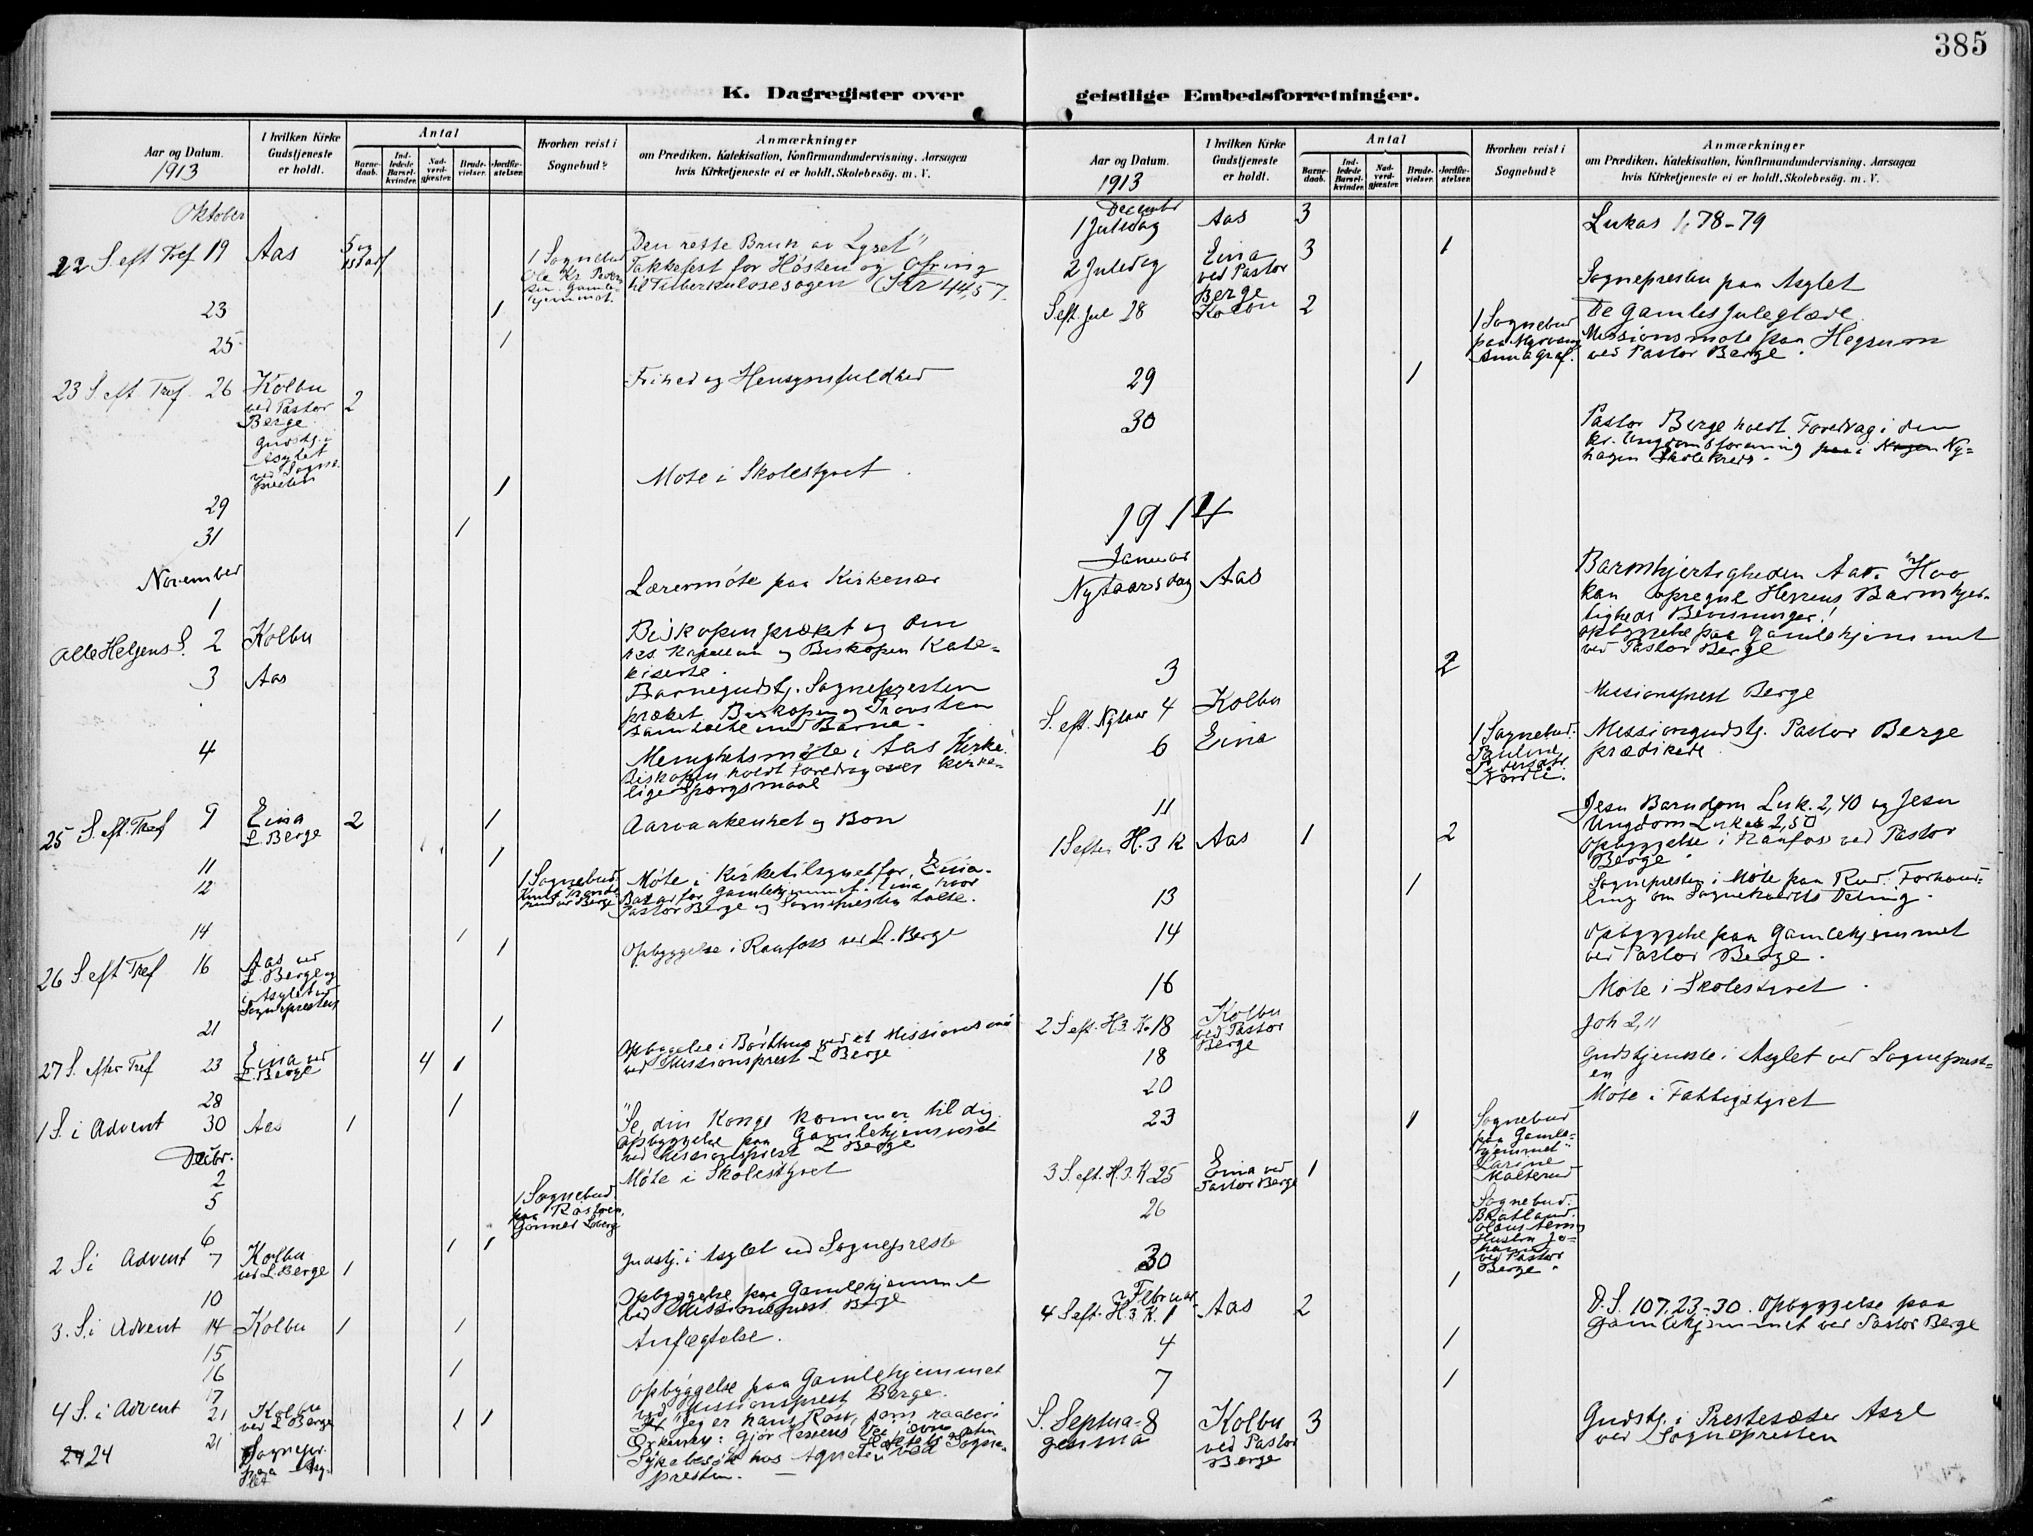 385
K. Dagregister over
geistlige Embedsforretninger.
Aar og Datum.
1913
I hvilken Kirke
Gudstjeneste
er holdt.
Antal
Barne-
daab.
Ind-
ledede
Barsel-
kvinder.
Nad-
verd-
gjæster.
Brude-
vielser.
Jordfæ-
stelser.
Hvorhen reist i
Sognebud?
Anmærkninger
om Prædiken, Katekisation, Konfirmandundervisning, Aarsagen
hvis Kirketjeneste ei er holdt, Skolebesøg. m. V.
Oktober
22 S. eft Tref 19 Aas 5 og
1 Sognebud
Den rette Bruk av Lyset"
Takkefest for Høsten og Ofring
til Tuberkulosesagen (Kr 44,57.
23 1
25 1
23 S eft Tref. 26 Kolbu 2 Frihed og Hensynsfuldhed
ved Pastor
Berge
Gudstj. i
Asylet
ved Sogne-
presten
1 Møte i Skolestyret
29
31 1
November
1 Lærermøte paa Kirkenær
Alle Helgens S. 2 Kolbu Biskopen præket og den
res. Kapellan og Biskopen Kate-
kiserte.
3 Aas Barnegudstj. Sognepresten
præket. Biskopen og Provsten
samtalte med Barna.
4 Menighetsmøte i Aas Kirke.
Biskopen holdt Foredrag over kirke-
lige Spørgsmaal
25 S. eft. Tref 9 Eina 2 1 Aarvaakenhet og Bøn
L. Berge
11 1
12 1 Sognebud Møte i Kirketilsynet for Eina.
Basar for Gamlehjemmet i Eina, hvor
Pastor Berge og Sognepresten talte.
14 1
26 S eft Tref 16 Aas ved 1 Opbyggelse i Raufoss ved L. Berge
L Berge og
i Asylet ved
Sognepresten
21 1
27 S. efter Tref 23 Eina ved 4 1 Opbyggelse i
L. Berge ved Missionsprest L Berge
28 1
1 S. i Advent 30 Aas 1 "Se, din Konge kommer til dig
Opbyggelse paa Gamlehjemmet
ved Missionsprest L Berge
Decbr.
2 Møte i Skolestyret
5 1 Sognebud
6 1 1
2 S i Advent 7 Kolbu 1 Gudstj. i Asylet ved Sogneprest
ved L. Berge
10 Opbyggelse paa Gamlehjemmet
ved Missionsprest Berge
3. S. i Advent 14 Kolbu 1 1 Anfægtelse.
15
16 1
17 Opbyggelse paa Gamlehjemmet
ved Missionsprest Berge.
4 S. i Advent 21 Kolbu 1 1 "Jeg er hans Røst, som raaber i
ved L Berge Ørkenen: Gjør Herrens Vei jævn
21 Sognepr.
24 paa Asy-
let
Sykebesøk hos Agnete ved Sogne-
presten.
Aar og Datum.
1913
I hvilken Kirke
Gudstjeneste
er holdt.
Antal
Barne-
daab.
Ind-
ledede
Barsel-
kvinder.
Nad-
verd-
gjæster.
Brude-
vielser.
Jordfæ-
stelser.
Hvorhen reist i
Sognebud?
Anmærkninger
om Prædiken, Katekisation, Konfirmandundervisning, Aarsagen
hvis Kirketjeneste ei er holdt, Skolebesøg. m. V.
December
1 Juledag Aas 3 Lukas 1, 78-79
2 Juledag Eina 3 1 Sognepresten paa Asylet
ved Pastor
Berge
S eft. Jul 28 Kolbu 2 1 Sognebud De Gamles Juleglæde.
Missionsmøte paa Hegsum
ved Pastor Berge.
29 1
30 Pastor Berge holdt Foredrag i den
kr. Ungdomsforening i Ny-
hagen Skolekreds.
1914
Januar
Nytaarsdag Aas Barmhjertigheden Aar. "Hvo
kan opregne Herrens Barmhjer-
tigheds Bevisninger!
Opbyggelse paa Gamlehjemmet
ved Pastor Berge
3 2
S. eft. Nytaar 4 Kolbu Missionsprest Berge
6 Eina 1 Sognebud. Missionsgudstj. Pastor Berge
prædikede.
11 Jesu Barndom Luk. 2,40 og Jesu
Ungdom Lukas 2,50
1 S efter H. 3 K Aas 1 2 Opbyggelse i Raufoss ved Pastor
Berge.
13 1 Sognepresten i Møte paa Rud. Forhand-
ling om Sognekaldets Deling.
14 Opbyggelse paa Gamlehjemmet
ved Pastor Berge.
16 Møte i Skolestyret.
2 S eft. H 3. K. 18 Kolbu Joh 2,11
ved Pastor
Berge
18 Gudstjeneste i Asylet ved Sogneprest-
en
20 Møte i Fattigstyret
23 1 Sognebud
paa Gamle-
hjemmet"
Larine
Malterud
3 S. eft. H. 3. K 25 Eina ved 1
Pastor Berge
26 Sognebud.
ved Pastor
Berge.
30 1
Februar
4 S eft. H 3. K. 1 Aas 2 D. S. 107, 23-30. Opbyggelse paa
Gamlehjemmet ved Pastor Berge
4 1
7 1
S. Septua- 8 Kolbu 3 Gudstj. i Prestesæter Asyl
gesima ved Pastor ved Sognepresten
Berge